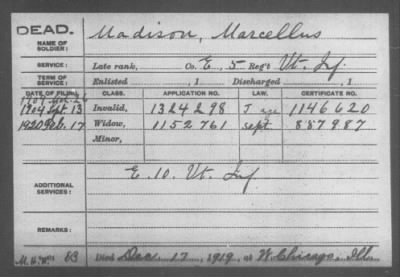 DEAD.
Madison, Marcellus
NAME OF SOLDIER:
SERVICE: Late rank, Co. E, 5 Reg't Vt. Inf.
TERM OF SERVICE: Enlisted , 1 Discharged , 1
DATE OF FILING. CLASS. APPLICATION NO. LAW. CERTIFICATE NO.
1904 Sept. 13 Invalid, 1324298 J age 1146620
1920 Feb. 17 Widow, 1152761 Sept 887987
Minor,
ADDITIONAL SERVICES: E. 10. Vt. Inf
REMARKS:
83 Died Dec. 17, 1919, at W. Chicago, Ill.